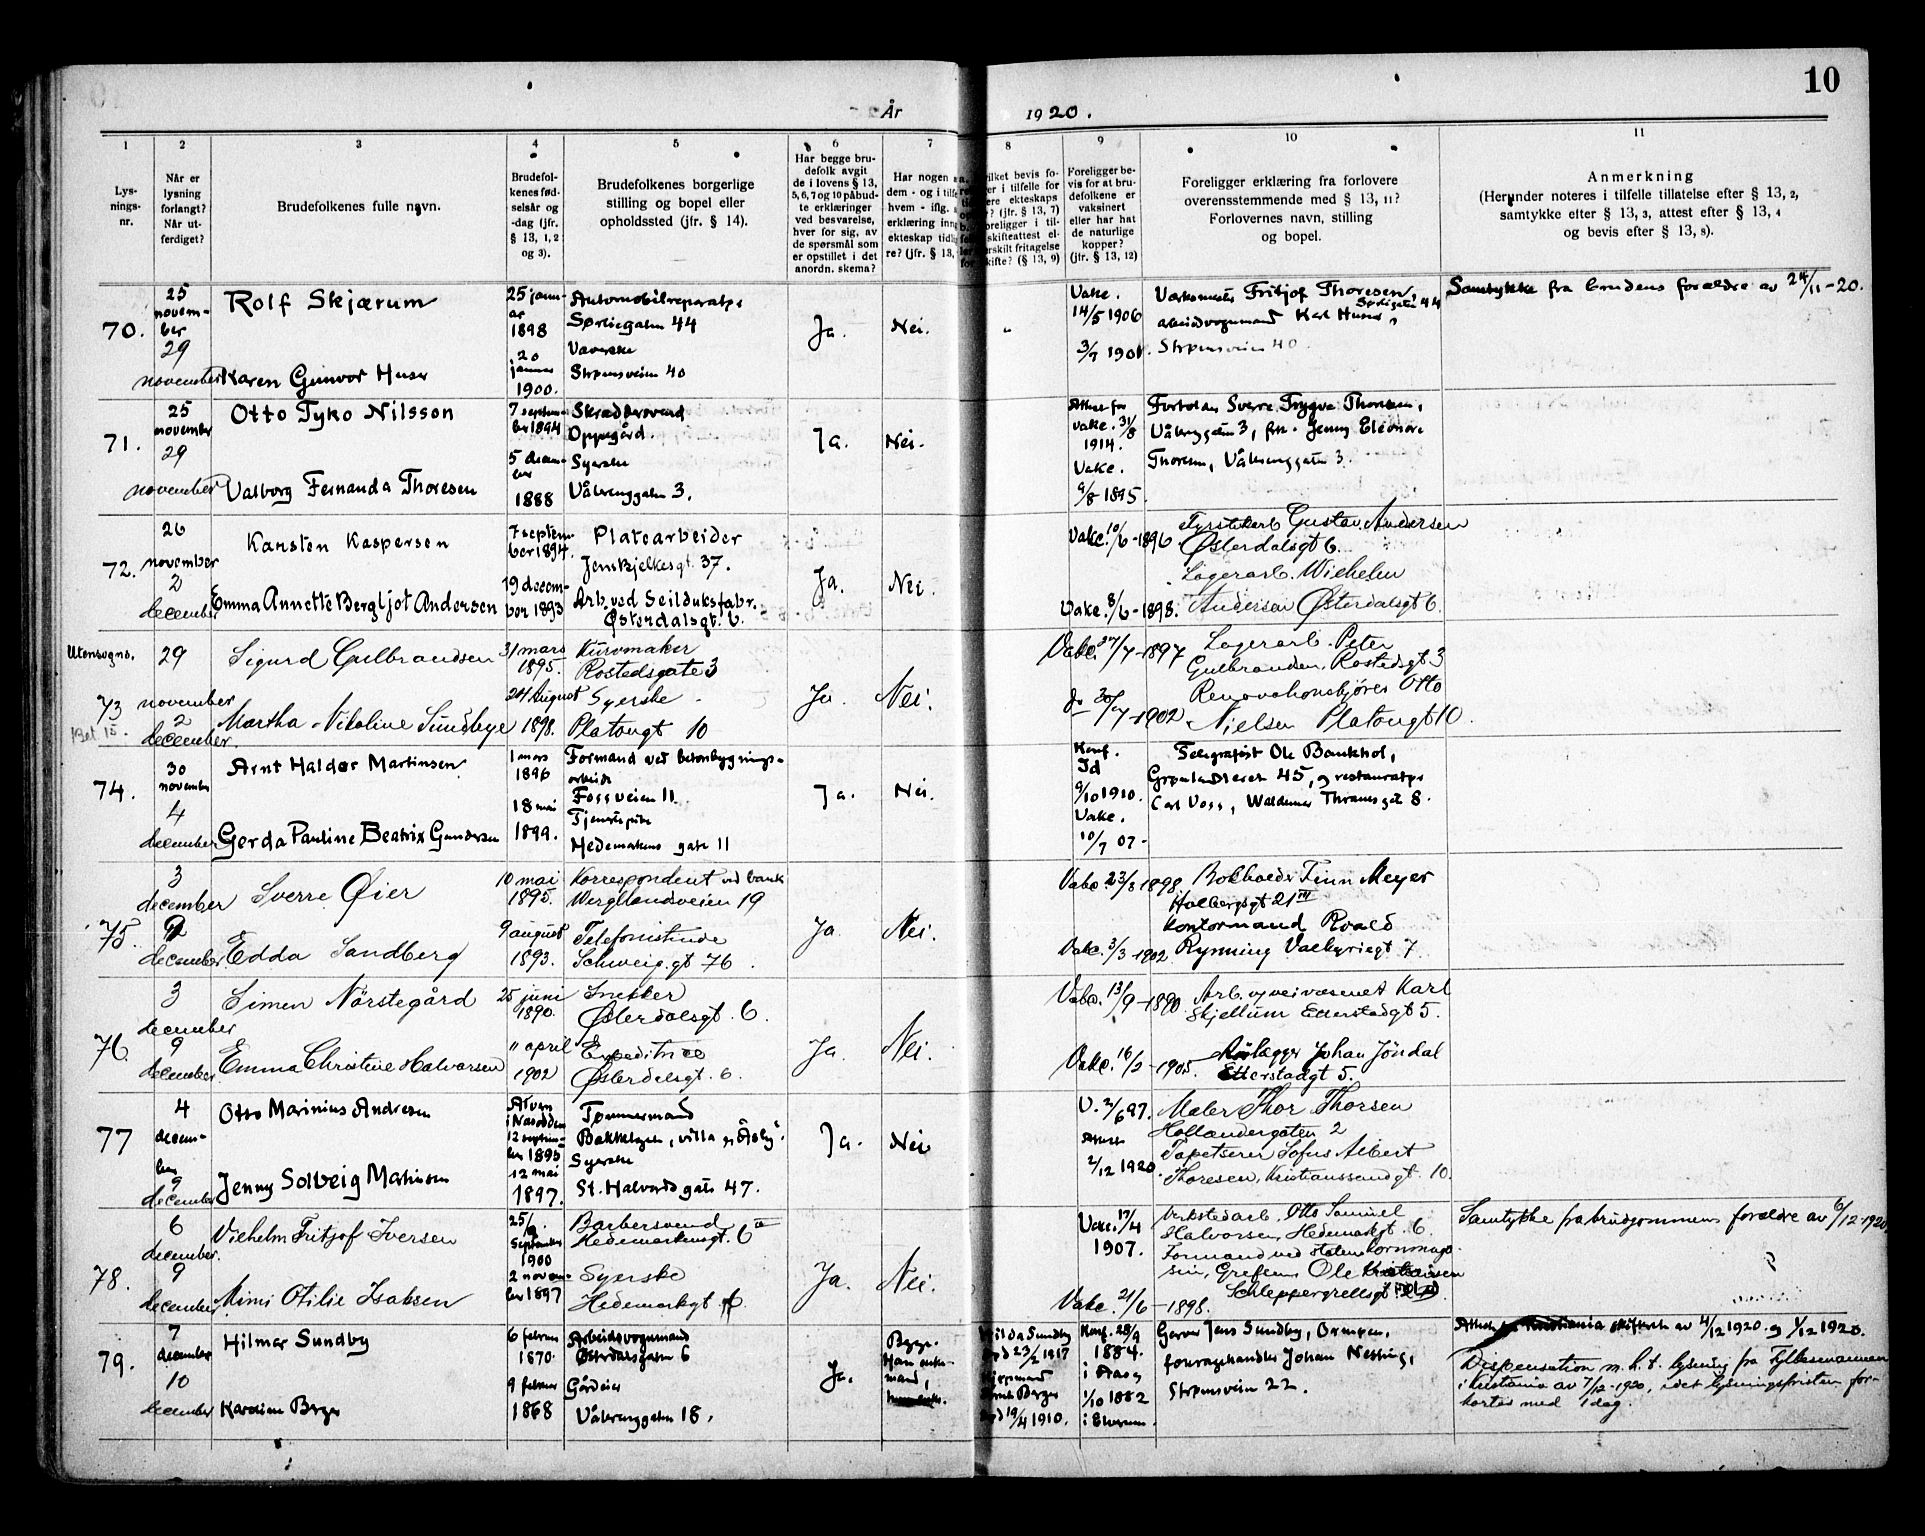 10
År 1920.
1 2 3 4 5 6 7 8 9 10 11
Lys-
nings-
nr.
Når er
lysning
forlangt?
Når ut-
ferdiget?
Brudefolkenes fulle navn.
Brudefol-
kenes fød-
selsår og
-dag (jfr.
§ 13, 1, 2
og 3).
Brudefolkenes borgerlige
stilling og bopel eller
opholdssted (jfr. § 14).
Har begge bru-
defolk avgit
de i lovens § 13,
5, 6, 7 og 10 påbud-
te erklæringer
ved besvarelse,
hver for sig, av
de spørsmål som
er opstillet i det
anordn. skema?
Har nogen a
dem - og i tilf
hvem - iflg.
erklæring inng
ekteskap tidlig
re? (jfr. § 13,
ilket bevis fo-
er i tilfelle for
ere ekteskaps
? (jfr. § 13, 7)
oreligger i til-
skifteattest el-
rskilt fritagelse
kifte? (§ 13, 9)
Foreligger be-
vis for at bru-
defolkene er
vaksinert
eller har hat
de naturlige
kopper?
(jfr. § 13, 12)
Foreligger erklæring fra forlovere
overensstemmende med § 13, 11?
Forlovernes navn, stilling
og bopel.
Anmerkning
(Herunder noteres i tilfelle tillatelse efter § 13, 2,
samtykke efter § 13, 3, attest efter § 13, 4
og bevis efter § 13, 8).
70.
25
novem-
ber
29
november
Rolf Skjærum
Karen Gunvor Huser
25 janu-
ar
1898
20
januar
1900.
Automobilreparatør
Sørliegaten 44
Væverske
Strømsveien 40
Ja.
Nei.
"
Vakc.
14/5 1906
Verksmester Fritjof Thoresen,
Sørligaten 44
arbeidvognmand Karl Huser,
Strømsveien 40
Samtykke fra brudens forældre av 24/11-20.
71.
25
november
29
november
Otto Tyko Nilsson
Valborg Fernanda Thoresen
7 septem-
ber 1894
5 decem-
ber
1888
Skræddersvend
Oppegård.
Syerske
Vålerenggaten 3.
Ja.
Nei.
Attest for
vakc. 31/8
1914.
Vakc.
9/8 1895.
Sverre Trygve Thoresen,
3, frk. Jenny Eleonore
Thoresen, Vålerenggaten 3.
72.
26
november
2
december
Karsten Kaspersen
Emma Annette Bergljot Andersen
7 septem-
ber 1894.
19 decem-
ber 1893
Platearbeider
Jens Bjelkesgt. 37.
Arb. ved Seilduksfabr.
Østerdalsgt. 6.
Ja.
Nei.
Vakc. 10/6-1896.
Vakc. 8/6-1898.
Gustav Andersen
Østerdalsgt 6.
Lagerarb. Wilhelm
Andersen Østerdalsgt 6.
Utensogns.
73
29
november
2
december.
Sigurd Gulbrandsen
Martha Nikoline Sundbye
31 mars
1895.
24 August
1898.
Kurvmaker
Rostedsgate 3
Syerske
Platougt 10
Ja.
Nei.
Vakc. 27/7-1897
do 30/7-1902
Lagerarb. Peter
Gulbrandsen, Rostedsgt 3
Renovationskjører Otto
Nielsen Platougt 10.
74.
30
november
4
december
Arnt Haldor Martinsen
Gerda Pauline Beatrix Gundersen
1 mars
1896
18 mai
1899.
Formand ved betonbygnings-
arbeide
Fossveien 11.
Tjenestepike
Hedemarkens gate 11
Ja.
Nei.
Konf.
Id
9/10 1910.
Vakc.
10/7 07-
Telegrafist Ole Bankhol,
Grønlandsleret 45, og restauratør
Carl Voss, Waldemar Thranesgate 8.
75.
3
december
9
december
Sverre Øier
Edda Sandberg
10 mai
1895.
9 august
1893.
Korrespondent ved bank
Wergelandveien 19
Telefonistinde
Schweig.gt 76.
Ja
Nei.
Vakc. 23/8 1898.
Vakc. 3/3-1902
Bokholder Finn Meyer
Holbergsgt 21 III
Kontormand Roald
Rynning Valkyriegt 7.
76
3
december
9
december.
Simen Nørstegård
Emma Christine Halvorsen
25 juni
1890.
11 april
1902
Snekker
Østerdalsgt. 6.
Expeditrice
Østerdalsgt. 6.
Ja.
Nei.
Vakc. 13/9-1890.
Vakc. 16/2-1905.
Arb. v veivæsenet Karl
Skjellum Etterstadgt 5.
Rørlægger Johan Jøndal
Etterstadgt 5.
77
4
decem-
ber
9
december
Otto Marinius Andresen
Jenny Solveig Martinsen
i Nesodden
12 septem-
ber 1895
12 mai
1897.
Tømmermand
Bækkelaget, villa
Syerske
St. Halvardsgate 47.
Ja.
Nei
V. 2/6 97.
Attest
2/12 1920.
Maler Thor Thorsen
Hollændergaten 2
Tapetserer Sofus Albert
Thoresen, Kristianssandgt. 10.
78.
6
december.
9
december
Vilhelm Fritjof Iversen
Mimi Otilie Isaksen
25/
September
1900
2 novem-
ber 1897
Barbersvend
Hedemarkensgt. 6 a
Syerske
Hedemarkgt 6.
Ja.
Nei.
Vakc. 17/4
1907.
Vakc. 21/6-1898.
Verkstedarb. Otto Samuel
Halvorsen, Hedemarkgt. 6.
Formand ved statens kornmaga-
sin, Grefsen, Ole
Schleppegrellsgt.
Samtykke fra brudgommens forældre av 6/12-1920
79.
7
december
10
december
Hilmar Sundby
Karoline Berger
6 februar
1870.
9 februar
1868
Arbeidsvognmand
Østerdalsgaten 6
Gårdeier
Vålerenggaten 18.
Ja.
Begge.
Han enke-
mand,
Hilda Sundby
død 23/2 1917
Berger
død 19/4 1910.
Konf. 28/9
1884.
1/10 1882
i Elverum.
Garver Jens Sundby, Bremsen,
fouragehandler Johan Nessing,
Strømsveien 22.
Attest fra Kristiania skifteret av 4/12 1920 og 1/12 1920.
Dispensation m. h. t. lysning fra Fylkesmannen
i Kristiania av 7/12-1920, idet lysningsfristen for-
kortes med 1 dag.